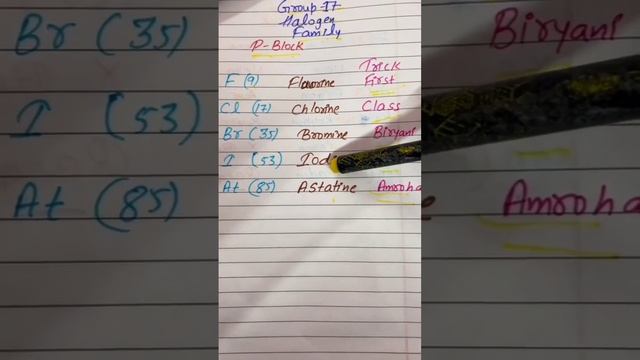 Group 17
Halogen
Family
P-Block
Trick
F (9) Flourine First
Cl (17) Chlorine Class
Br (35) Bromine Biryani
I (53) Iod
At (85) Astatine Amroha
Br (35) Biryani
I (53)
At (85) Amroha